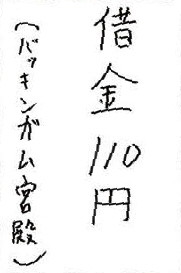 借金110円
(バッキンガム宮殿)